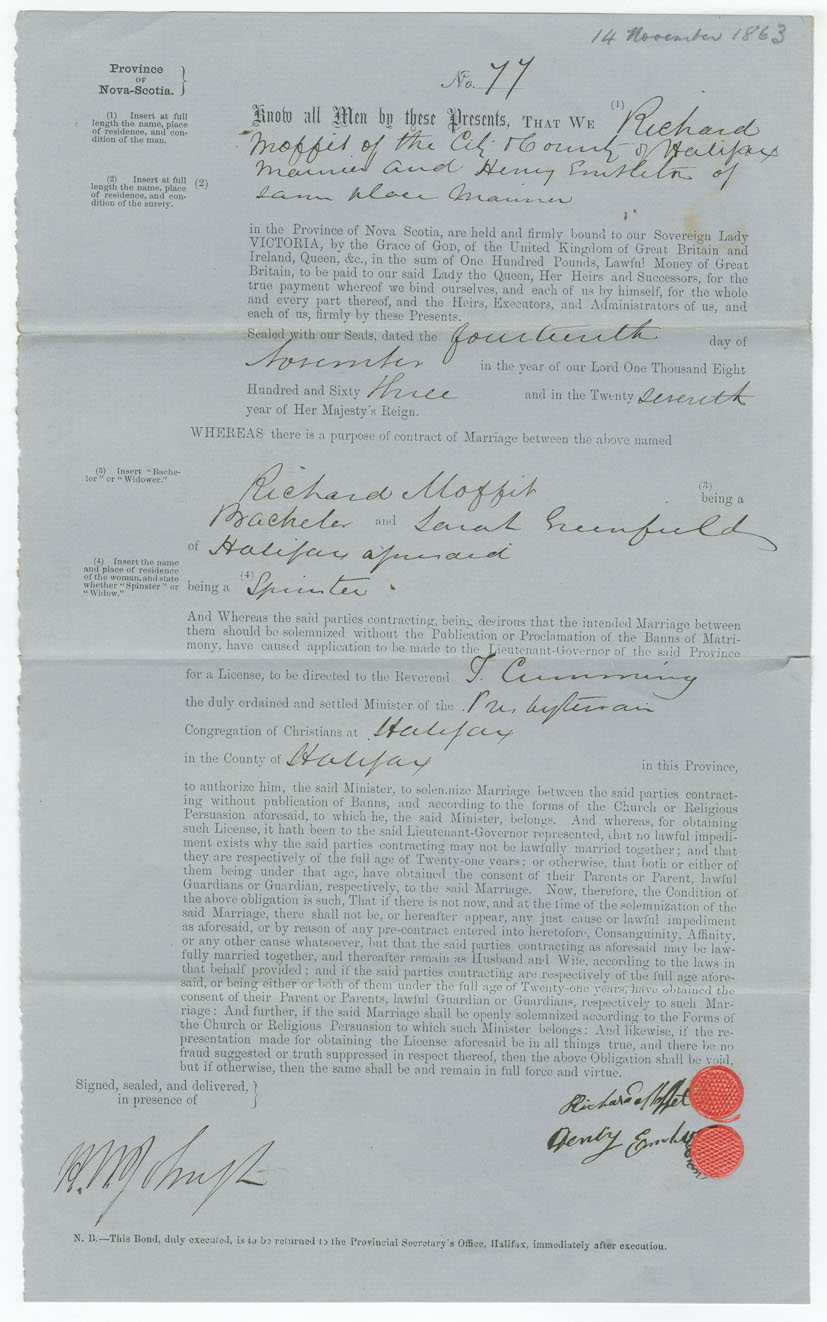 14 November 1863
Province
OF
Nova-Scotia.
No. 77
(1) Insert at full
length the name, place
of residence, and con-
dition of the man.
Know all Men by these Presents, THAT WE (1) Richard
Moffit of the City & County of Halifax
(2) Insert at full
length the name, place
of residence, and con-
dition of the surety.
(2) Mariner and Henry Embleton of
same place Mariner
in the Province of Nova Scotia, are held and firmly bound to our Sovereign Lady
VICTORIA, by the Grace of GOD, of the United Kingdom of Great Britain and
Ireland, Queen, &c., in the sum of One Hundred Pounds, Lawful Money of Great
Britain, to be paid to our said Lady the Queen, Her Heirs and Successors, for the
true payment whereof we bind ourselves, and each of us by himself, for the whole
and every part thereof, and the Heirs, Executors, and Administrators of us, and
each of us, firmly by these Presents.
Sealed with our Seals, dated the fourteenth day of
November in the year of our Lord One Thousand Eight
Hundred and Sixty three and in the Twenty seventh
year of Her Majesty's Reign.
WHEREAS there is a purpose of contract of Marriage between the above named
(3) Insert "Bache-
lor" or "Widower."
Richard Moffit (3) being a
Bachelor and Sarah Greenfield
of Halifax aforesaid
(4) Insert the name
and place of residence
of the woman, and state
whether "Spinster" or
"Widow."
being a (4) Spinster
And Whereas the said parties contracting, being desirous that the intended Marriage between
them should be solemnized without the Publication or Proclamation of the Banns of Matri-
mony, have caused application to be made to the Lieutenant-Governor of the said Province
for a License, to be directed to the Reverend T. Cumming
the duly ordained and settled Minister of the Presbyterian
Congregation of Christians at Halifax
in the County of Halifax in this Province,
to authorize him, the said Minister, to solemnize Marriage between the said parties contract-
ing without publication of Banns, and according to the forms of the Church or Religious
Persuasion aforesaid, to which he, the said Minister, belongs. And whereas, for obtaining
such License, it hath been to the said Lieutenant-Governor represented, that no lawful impedi-
ment exists why the said parties contracting may not be lawfully married together; and that
they are respectively of the full age of Twenty-one years; or otherwise, that both or either of
them being under that age, have obtained the consent of their Parents or Parent, lawful
Guardians or Guardian, respectively, to the said Marriage. Now, therefore, the Condition of
the above obligation is such, That if there is not now, and at the time of the solemnization of the
said Marriage, there shall not be, or hereafter appear, any just cause or lawful impediment
as aforesaid, or by reason of any pre-contract entered into heretofore, Consanguinity, Affinity,
or any other cause whatsoever, but that the said parties contracting as aforesaid may be law-
fully married together, and thereafter remain as Husband and Wife, according to the laws in
that behalf provided; and if the said parties contracting are respectively of the full age afore-
said, or being either or both of them under the full age of Twenty-one years, have obtained the
consent of their Parent or Parents, lawful Guardian or Guardians, respectively to such Mar-
riage: And further, if the said Marriage shall be openly solemnized according to the Forms of
the Church or Religious Persuasion to which such Minister belongs: And likewise, if the re-
presentation made for obtaining the License aforesaid be in all things true, and there be no
fraud suggested or truth suppressed in respect thereof, then the above Obligation shall be void,
but if otherwise, then the same shall be and remain in full force and virtue.
Signed, sealed, and delivered,
in presence of
Richard Moffet
Henry
N. B.—This Bond, duly executed, is to be returned to the Provincial Secretary's Office, Halifax, immediately after execution.